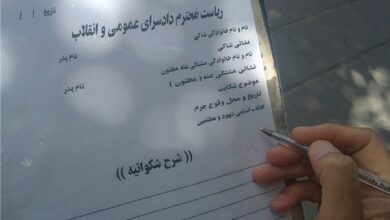 تاریخ / /
ریاست محترم دادسرای عمومی و انقلاب
نام و نام خانوادگی شاکی نام پدر
نشانی شاکی
نام و نام خانوادگی مشتکی عنه مظنون
نشانی مشتکی عنه ( مظنون ) نام پدر
موضوع شکایت
تاریخ و محل وقوع جرم
ادله ـ اسامی شهود و مطلعین
(( شرح شکوائیه ))